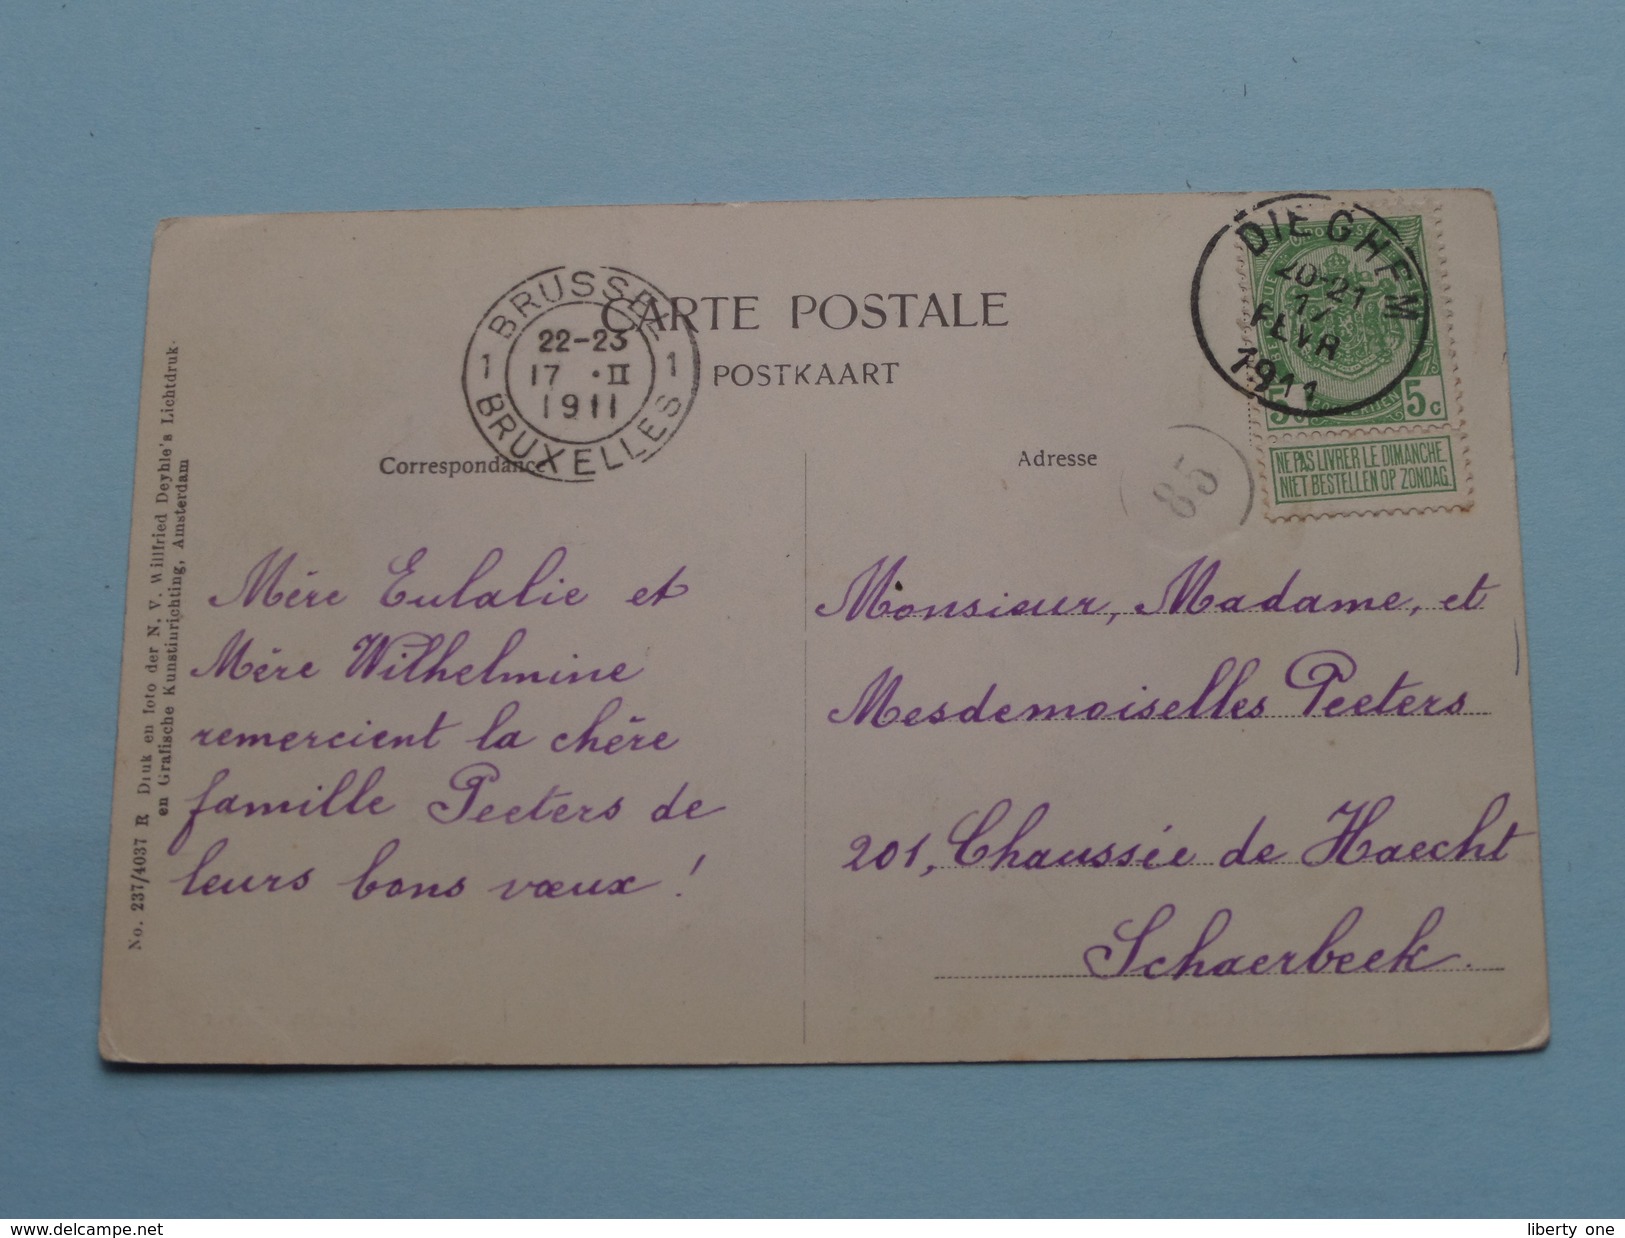 CARTE POSTALE
POSTKAART
BRUSSEL
1 22-23 1
17 · II
1911
BRUXELLES
DIEGHEM
20-21
17
FEVR
1911
5c 5c
NE PAS LIVRER LE DIMANCHE
NIET BESTELLEN OP ZONDAG
85
Correspondance
Adresse
Mère Eulalie et
Mère Wilhelmine
remercient la chère
famille Peeters de
leurs bons vœux !
Monsieur, Madame, et
Mesdemoiselles Peeters
201, Chaussée de Haecht
Schaerbeek.
No. 237/4037 R Druk en foto der N. V. Willfried Deyhle's Lichtdruk-
en Grafische Kunstinrichting, Amsterdam
www.delcampe.net
liberty one